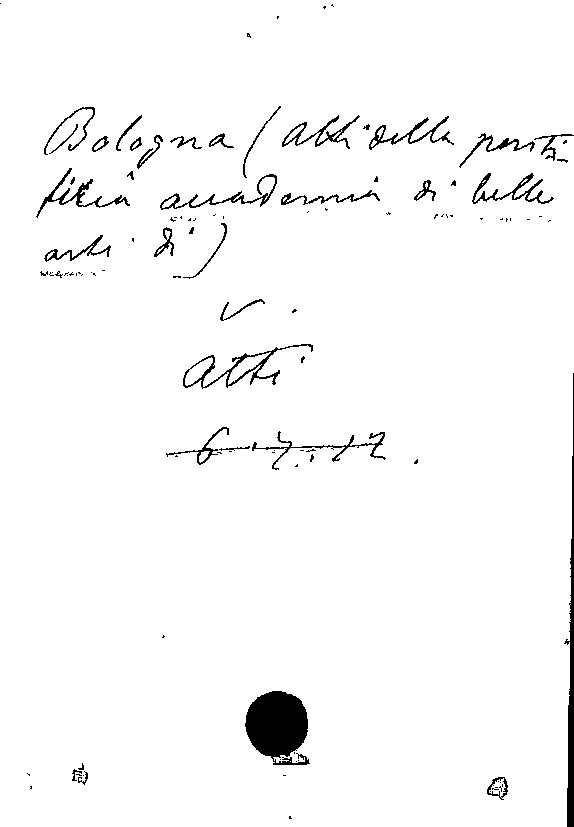 Bologna (Atti della ponti-
ficia accademia di belle
arti di)
V.
Atti
6.7.17.